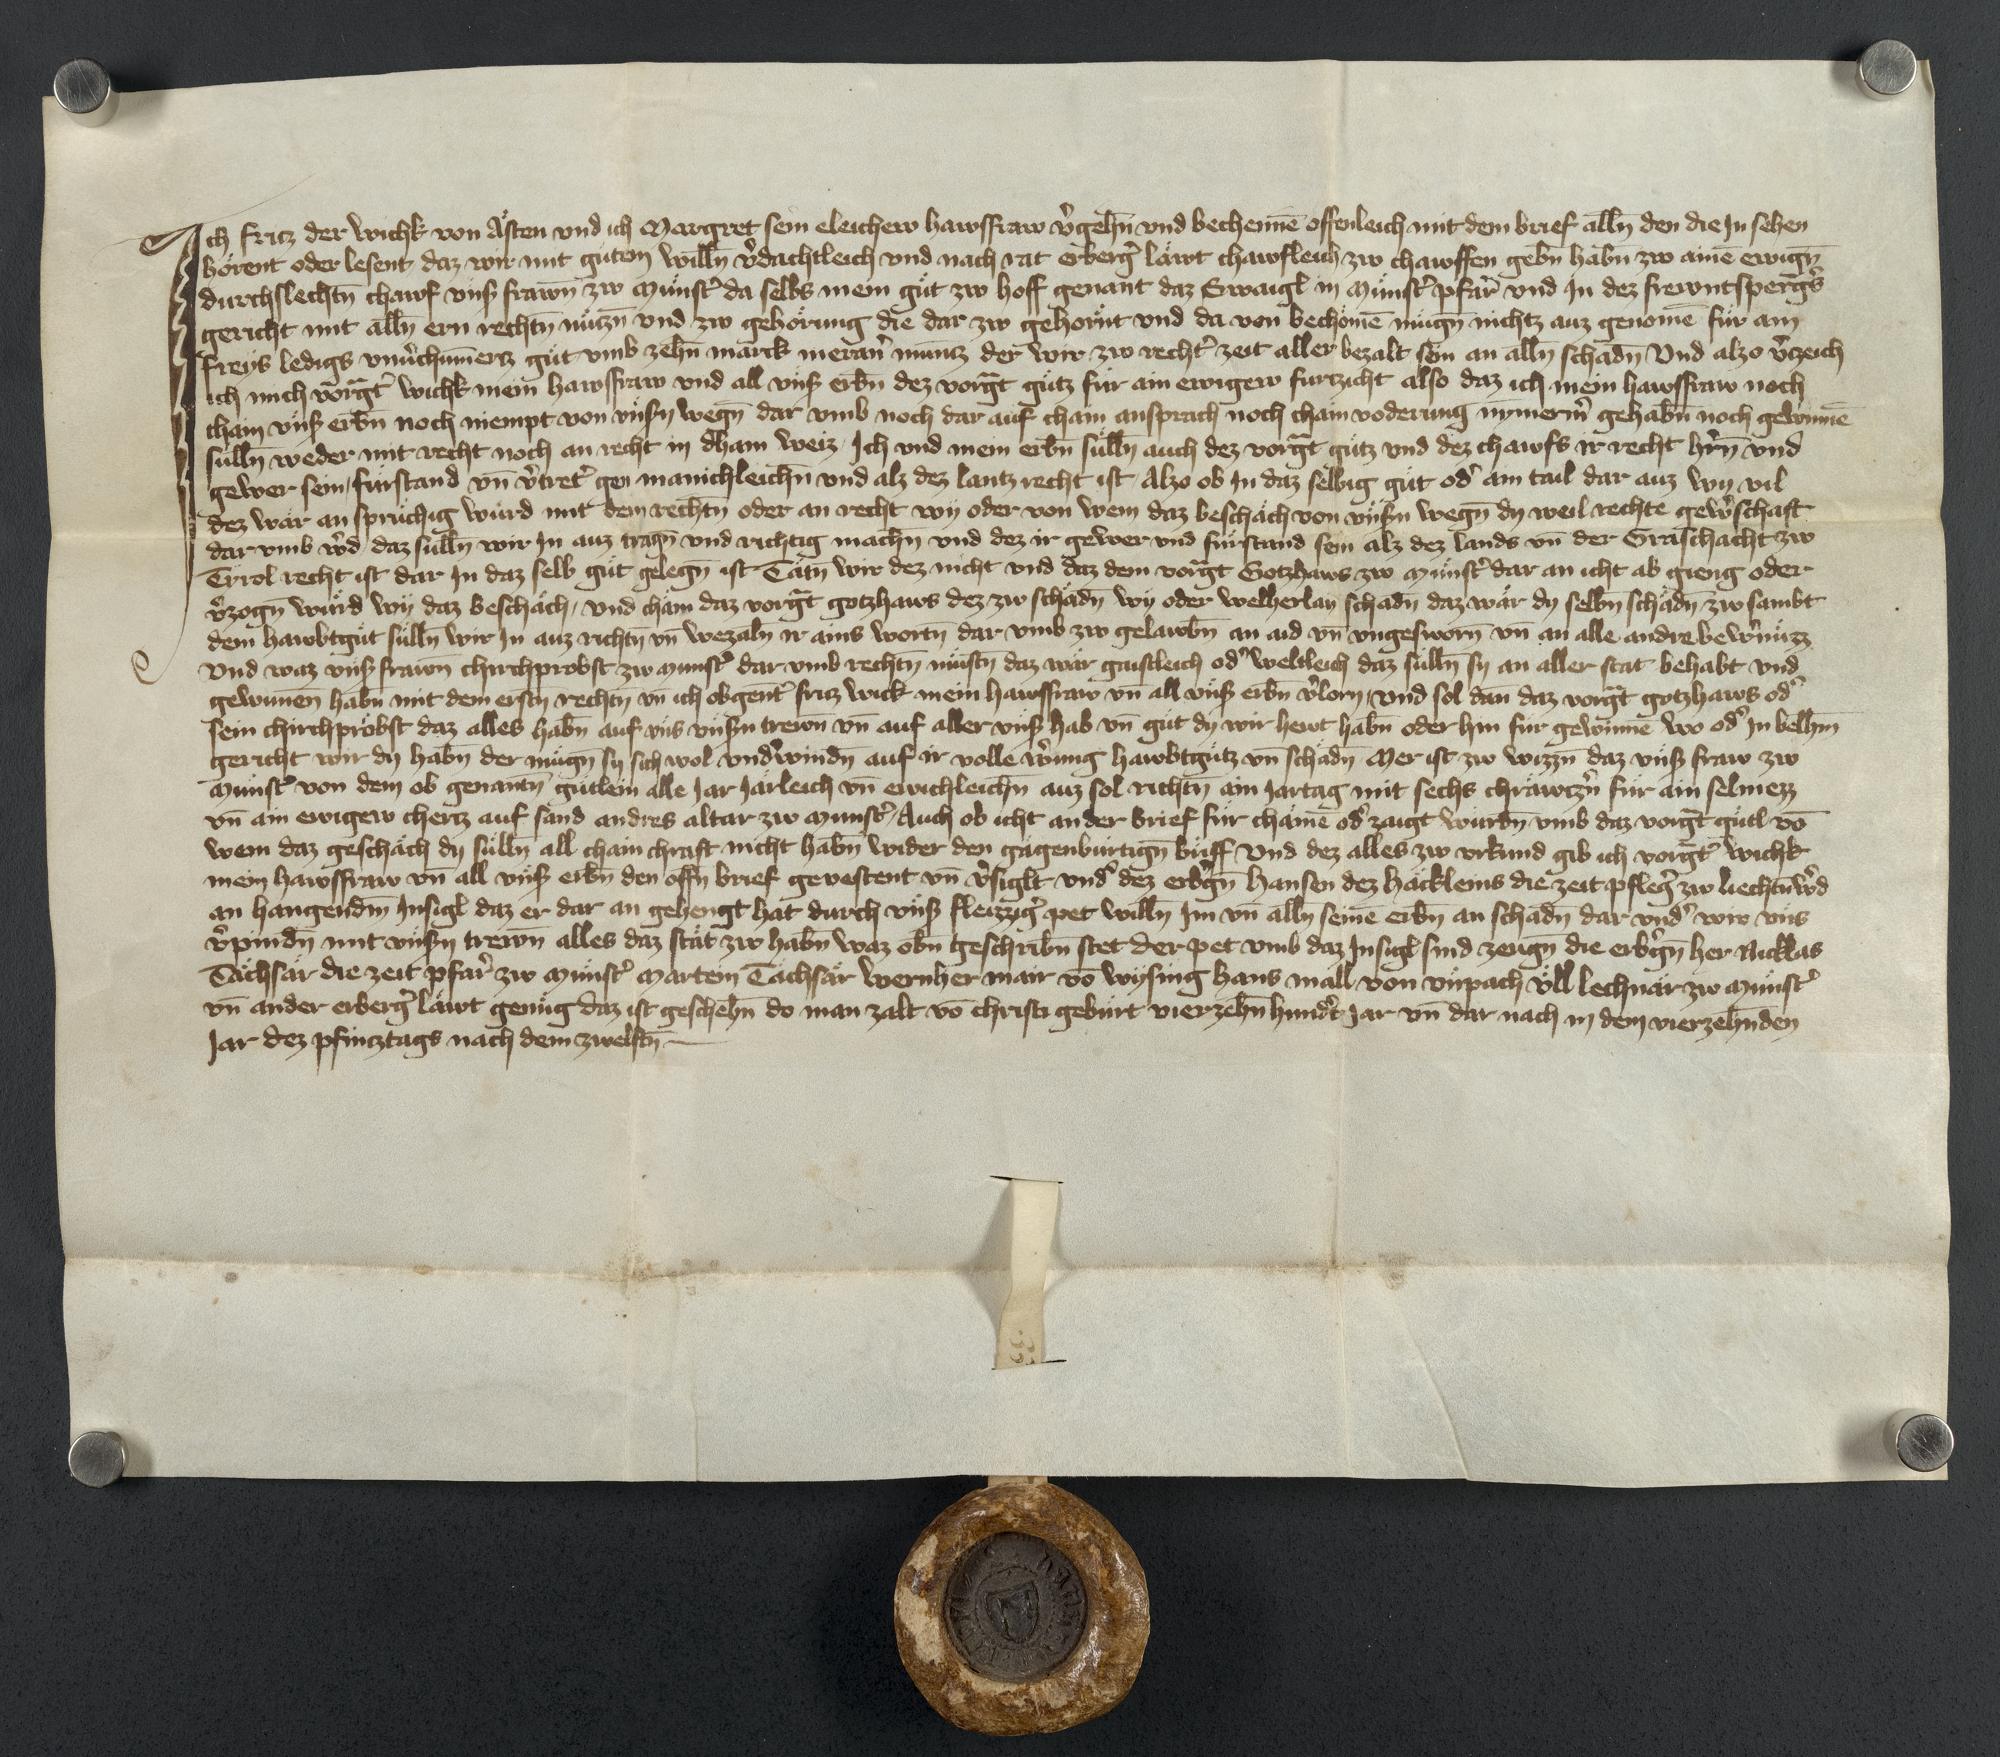 Ich fricz der wichk von Ästen vnd ich Margret sein eleichew hawsfraw v̓gehn̄ vnd bechennē offenleich mit dem brief alln̄ den die Jn sehen
hörent oder lesent daz wir mit gůtem willn̄ v̓dachtleich vnd nach rat erberg̓ läwt chawfleich zw chawffen gebn̄ habn̄ zw ainē ewign̄
durchslechtn̄ chawf vnſ̓ frawn̄ zw Münst̓ da selbs mein gůt zw hoff genant daz Erwaigl in Münst̓ pfarr̓ vnd Jn dez frewntsperg̓s
gericht mit alln̄ ern rechtn̄ nüczn̄ vnd zw gehörung die dar zw gehörnt vnd da von bechömē mügn̄ nichtz auz genomē für ain
freys ledigs vnv̓chumertz gůt vmb zehn̄ marck meran̓ münz der wir zw recht̓ zeit aller bezalt sein an alln̄ schadn̄ Vnd alzo v̓czeich
ich mich vorgt̄̓ wichk mein hawsfraw vnd all vnſ̓ erbn̄ dez vorgt̄ gůtz für ain ewigew furtzicht also daz ich mein hawsfraw noch
chain vnſ̓ erbn̄ noch niempt von vnſ̓n wegn̄ dar vmb noch dar auf chain ansprach noch chain voderung nymerm̓ gehabn̄ noch gewinnē
sülln weder mit recht noch an recht in dhain weiz Ich vnd mein erbn̄ sülln̄ auch dez vorgt̄ gůtz vnd dez chawfs ir recht hr̓n̄ vnd
gewer sein fürstand vn̄ v̓tret̓ gen mänichleichn̄ vnd alz dez lantz recht ist Alzo ob Jn daz selbig gůt od̓ ain tail dar auz wy vil
dez wär an sprüchig würd mit dem rechtn̄ oder an recht wy oder von wem daz beschäch von vnſ̓n wegn̄ dy weil rechte gew̓schaft
dar vmb w̓d daz sülln̄ wir Jn auz tragn̄ vnd richtig machn̄ vnd dez ir gewer vnd fürstand sein alz dez lands vn̄ der Grafschacht zw
Tyrol recht ist dar Jn daz selb gůt gelegn̄ ist Tätn̄ wir dez nicht vnd daz dem vorgt̄ Gotzhaws zw Münst̓ dar an icht ab gieng oder
v̓zogn̄ würd wy daz beschäch vnd chäm daz vorgt̄ gotzhaws dez zw schadn̄ wy oder welherlay schadn̄ daz wär dy selbn̄ schädn̄ zw sambt
dem hawbtgůt sülln̄ wir Jn auz richtn̄ vn̄ wezaln ir ains wortn̄ dar vmb zw gelawbn̄ an aid vn̄ vngesworn̄ vn̄ an alle andre bew̓nüzz
Vnd waz vnſ̓ frawn chirchprobst zw Münst̓ dar vmb rechtn̄ müstn̄ daz wär gaistleich od̓ weltleich daz sülln̄ sy an aller stat behabt vnd
gewunen habn̄ mit dem erstn̄ rechtn̄ vn̄ ich obgent̄̓ fricz wick mein hawsfraw vn̄ all vnſ̓ erbn̄ v̓lorn vnd sol dan̄ daz vorgt̄ gotzhaws od̓
sein chirchpröbst daz alles habn̄ auf vns vnſ̓n trewn̄ vn̄ auf aller vnſ̓ hab vn̄ gůt dy wir hewt habn̄ oder hin für gewinnē wo od̓ Jn belhm̄
gericht wir dy habn̄ der mügn̄ sy sich wol vnd̓windn̄ auf ir volle w̓ung hawbtgůtz vn̄ schadn̄ Mer ist zw wizzn̄ daz vnſ̓ fraw zw
Münst̓ von dem ob genantn̄ gütlein alle Jar Järleich vn̄ ewichleichn̄ auz sol richtn̄ ain Jartag mit sechs chräwczn̓ für ain selmezz
vn̄ ain ewigew chertz auf sand andres altar zw Münst̓ Auch ob icht ander brief für chämē od̓ zaigt würdn̄ vmb daz vorgt̄ gütl vō
wem daz geschäch dy sülln̄ all chain chraft nicht habn̄ wider den gägenbürtign̄ brüff Vnd dez alles zw vrkund gib ich vorgt̄̓ wichk
mein hawsfraw vn̄ all vnſ̓ erbn̄ den offn̄ brief gevestent vn̄ v̓siglt vnd̓ dez erb̓gn̄ Hansen dez Häckleins die zeit pfleg̓ zw liechtnw̓d
an hangendm̄ Jnsigl daz er dar an gehengt hat durch vnſ̓ fleizzig̓ pet willn̄ Jm vn̄ alln̄ seinē erbn̄ an schadn̄ dar vnd̓ wir vns
v̓pindn̄ mit vnſ̓n trewn̄ alles daz stät zw habn̄ waz obn̄ geschribn̄ stet Der pet vmb daz Jnsigl sind zeugn̄ die erb̓gn̄ her Nicklas
Tächsär die zeit pfarr̓ zw Münst̓ Martein Tächsär Wernher mair vō wysing Hans mäll von vnpach Vll lechnär zw Münst̓
vn̄ ander erberg̓ läwt genüg daz ist geschehn̄ do man zalt vō christi gebürt vierzehn̄ hund̓t Jar vn̄ dar nach in dem vierzehnden
Jar dez pfincztags nach dem zwelftn̄